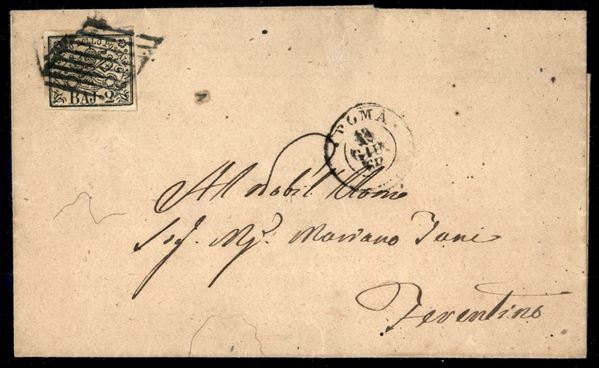 BAJ. 2
ROMA
GIU
Al nobil Uomo
Sig. Mariano Jani
Ferentino